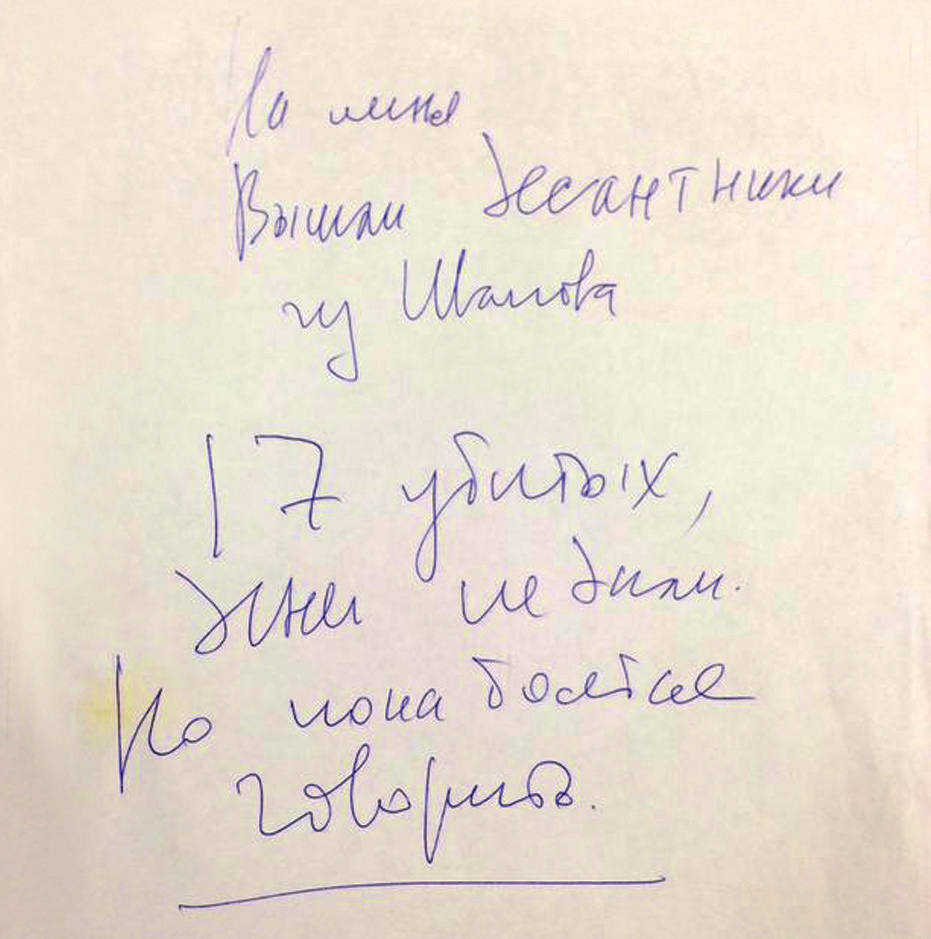 На меня
Вышли десантники
из Шалова
17 убитых,
денег не дали.
Но пока боятся
говорить.